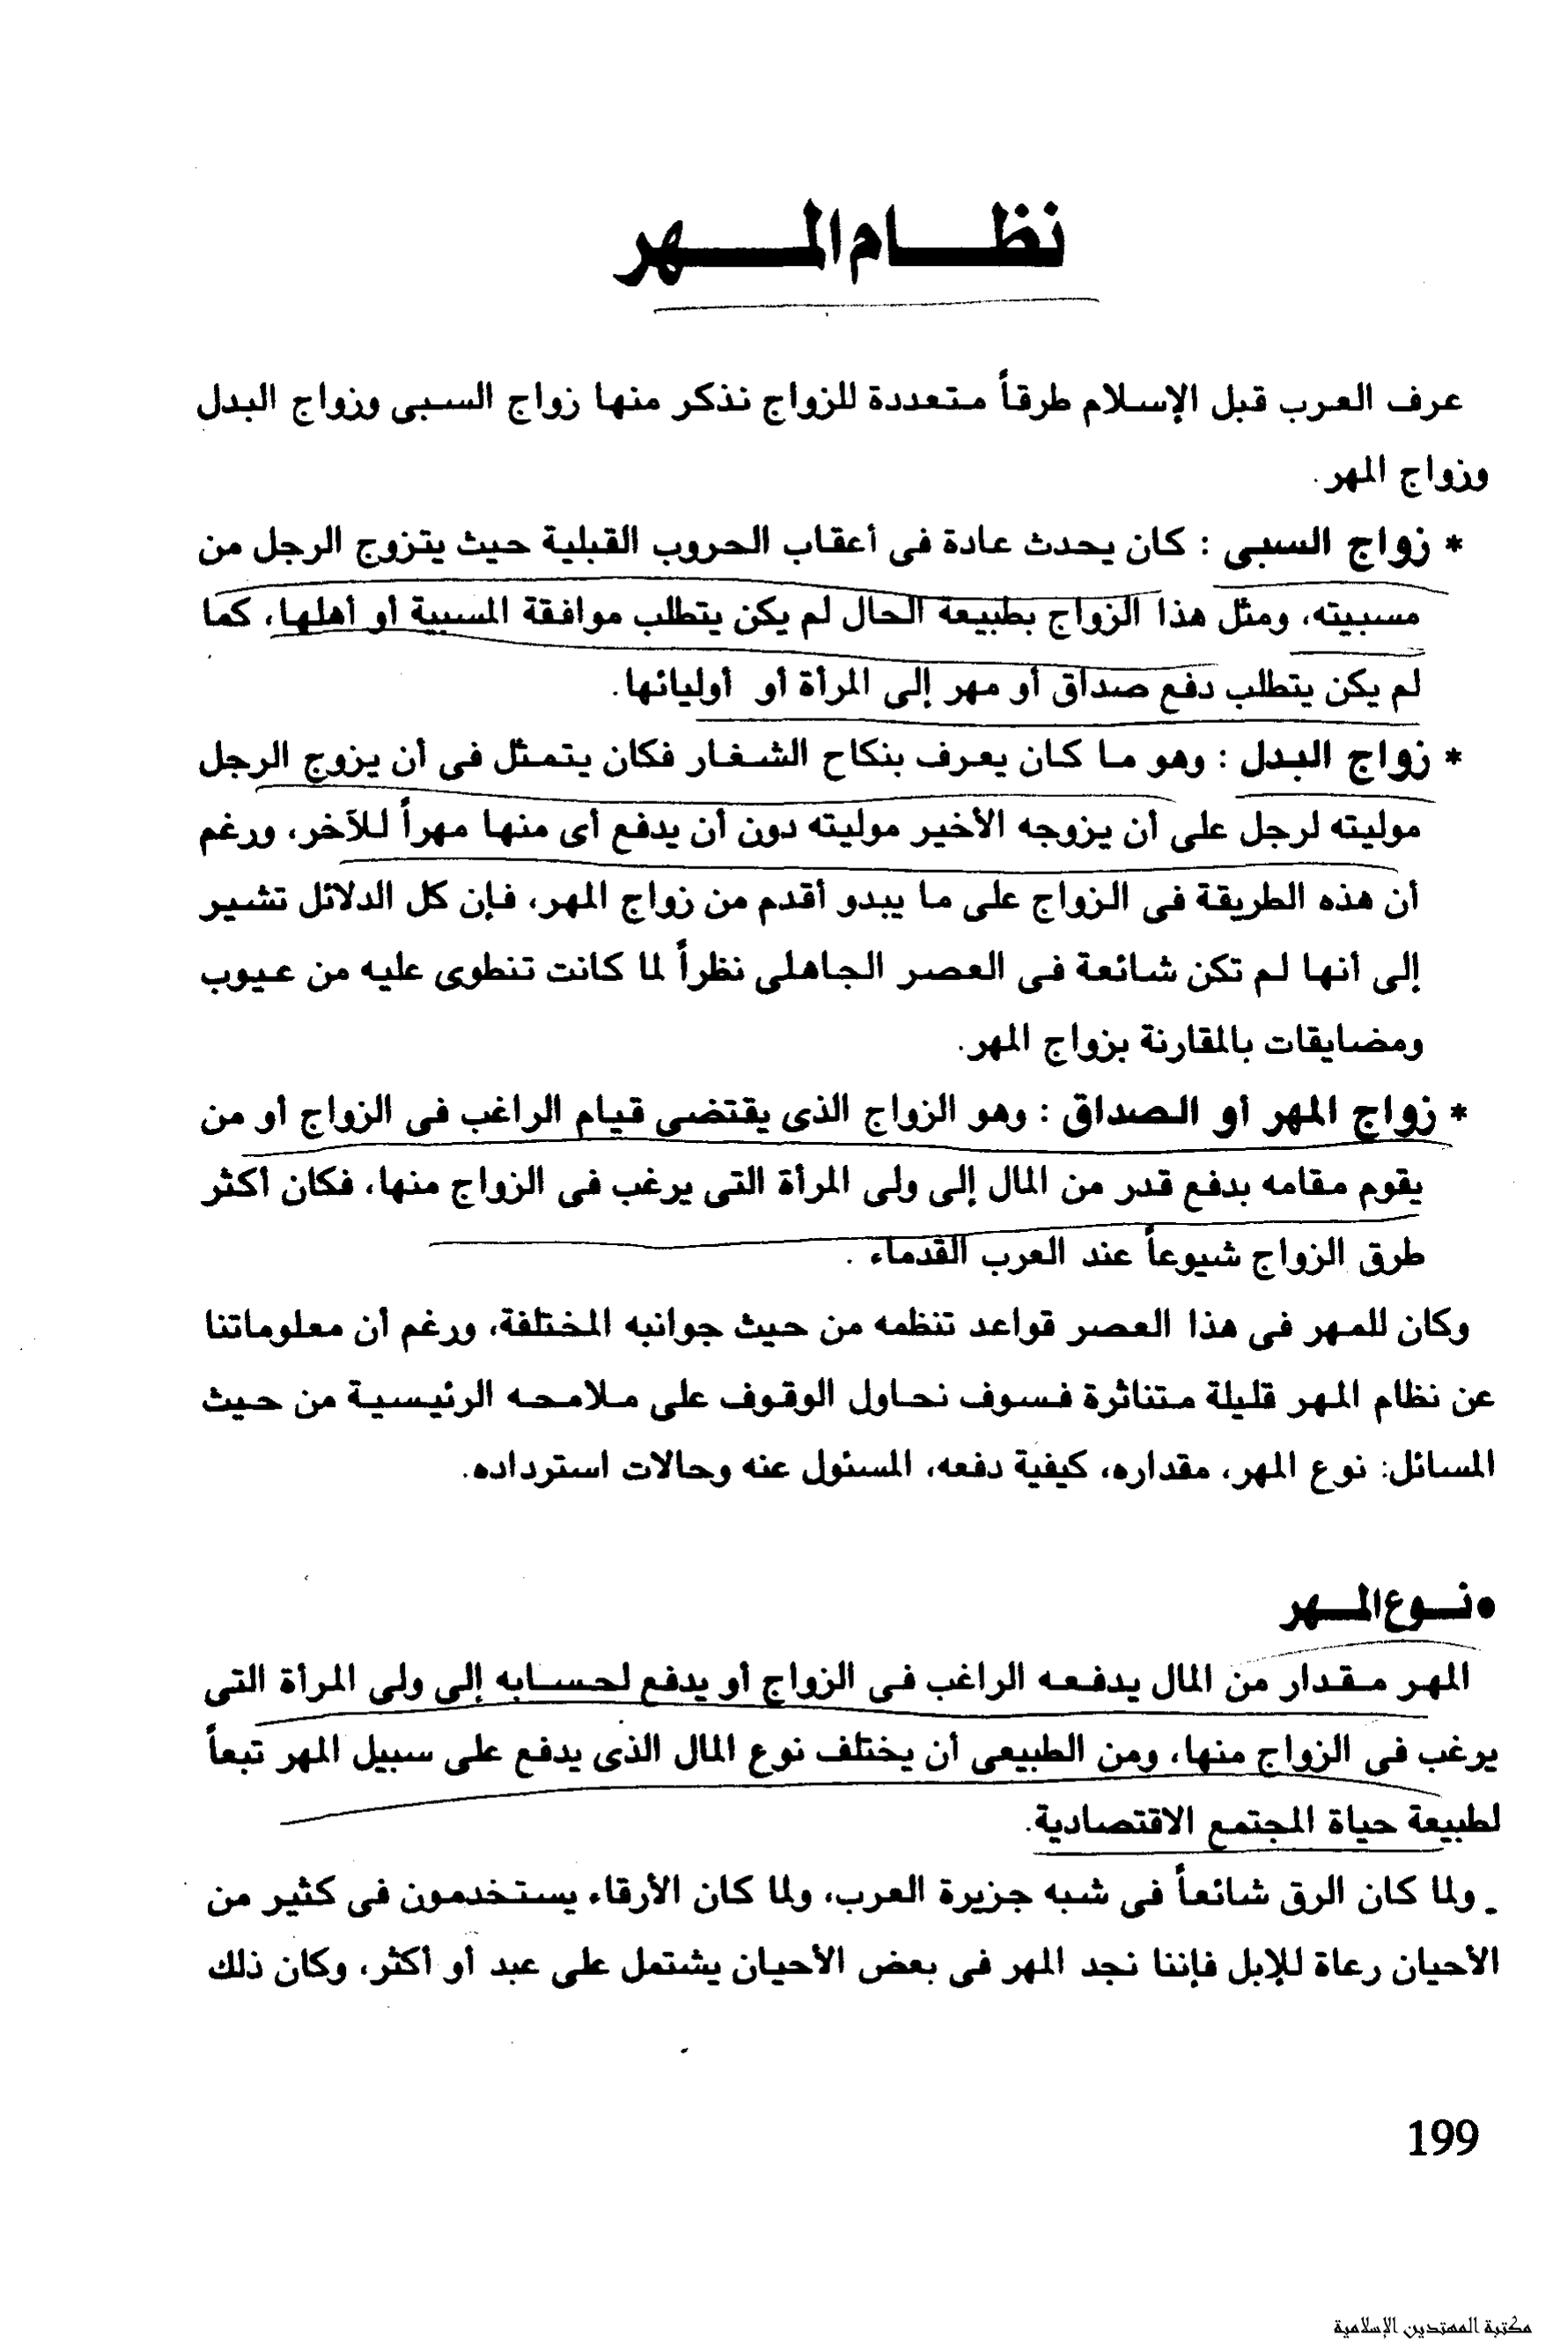 نظام المهر
عرف العرب قبل الإسلام طرقاً متعددة للزواج نذكر منها زواج السبى وزواج البدل
وزواج المهر.
* زواج السبى : كان يحدث عادة فى أعقاب الحروب القبلية حيث يتزوج الرجل من
مسبيته، ومثل هذا الزواج بطبيعة الحال لم يكن يتطلب موافقة المسبية أو أهلها، كما
لم يكن يتطلب دفع صداق أو مهر إلى المرأة أو أوليائها.
* زواج البدل : وهو ما كان يعرف بنكاح الشغار فكان يتمثل فى أن يزوج الرجل
موليته لرجل على أن يزوجه الأخير موليته دون أن يدفع أى منها مهراً للآخر، ورغم
أن هذه الطريقة فى الزواج على ما يبدو أقدم من زواج المهر، فإن كل الدلائل تشير
إلى أنها لم تكن شائعة فى العصر الجاهلى نظراً لما كانت تنطوى عليه من عيوب
ومضايقات بالمقارنة بزواج المهر.
* زواج المهر أو الصداق : وهو الزواج الذى يقتضى قيام الراغب فى الزواج أو من
يقوم مقامه بدفع قدر من المال إلى ولى المرأة التى يرغب فى الزواج منها، فكان أكثر
طرق الزواج شيوعاً عند العرب القدماء .
وكان للمهر فى هذا العصر قواعد تنظمه من حيث جوانبه المختلفة، ورغم أن معلوماتنا
عن نظام المهر قليلة متناثرة فسوف نحاول الوقوف على ملامحه الرئيسية من حيث
المسائل: نوع المهر، مقداره، كيفية دفعه، المسئول عنه وحالات استرداده.
• نوع المهر
المهر مقدار من المال يدفعه الراغب فى الزواج أو يدفع لحسابه إلى ولى المرأة التى
يرغب فى الزواج منها، ومن الطبيعى أن يختلف نوع المال الذى يدفع على سبيل المهر تبعاً
لطبيعة حياة المجتمع الاقتصادية.
ـ ولما كان الرق شائعاً فى شبه جزيرة العرب، ولما كان الأرقاء يستخدمون فى كثير من
الأحيان رعاة للإبل فإننا نجد المهر فى بعض الأحيان يشتمل على عبد أو أكثر، وكان ذلك
199
مكتبة المهتدين الإسلامية